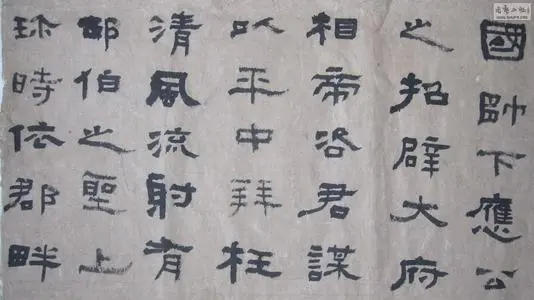 國帥下應公
之招辟大府
相帝咨君謀
以平中拜枉
清風流射有
邵伯之聖上
珎時依郡畔